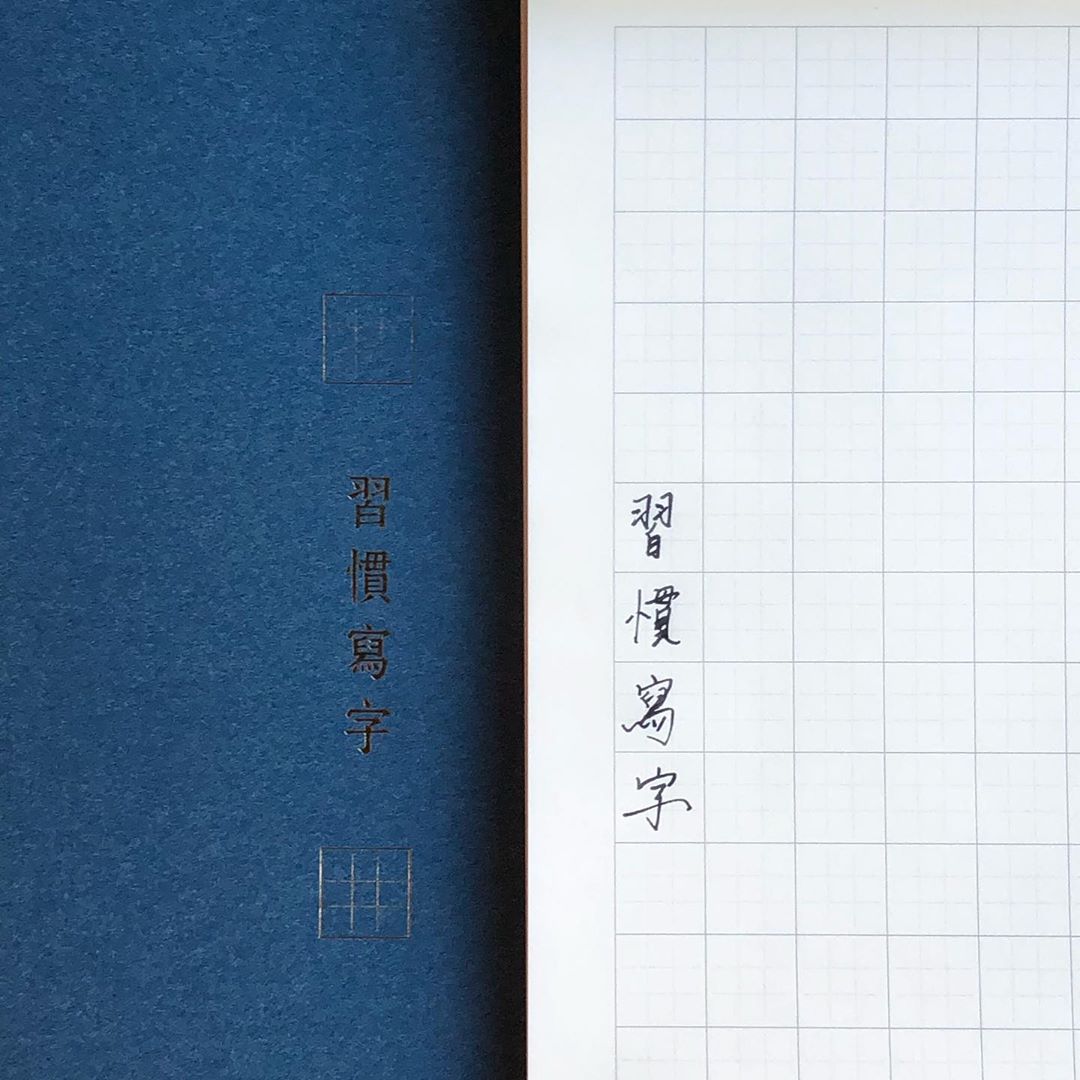 習慣寫字
習慣寫字